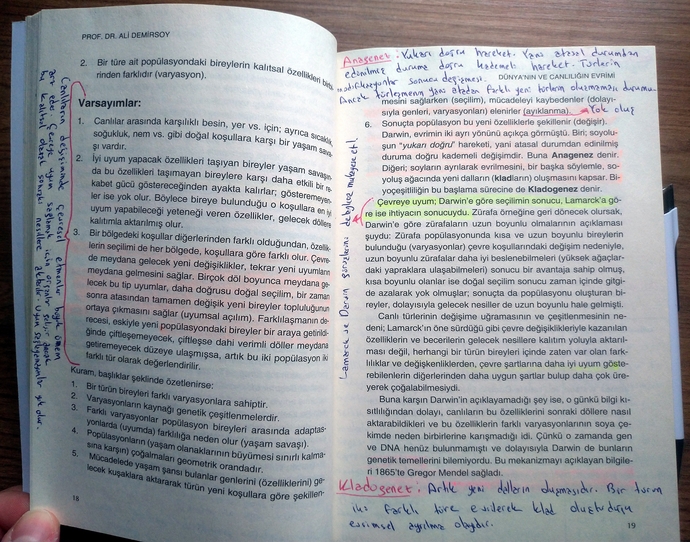 PROF. DR. ALİ DEMİRSOY
2. Bir türe ait popülasyondaki bireylerin kalıtsal özellikleri birbi-
rinden farklıdır (varyasyon).
Varsayımlar:
1. Canlılar arasında karşılıklı besin, yer vs. için; ayrıca sıcaklık,
soğukluk, nem vs. gibi doğal koşullara karşı bir yaşam sava-
şı vardır.
2. İyi uyum yapacak özellikleri taşıyan bireyler yaşam savaşın-
da bu özellikleri taşımayan bireylere karşı daha etkili bir re-
kabet gücü göstereceğinden ayakta kalırlar; gösteremeyen-
ler ise yok olur. Böylece bireye bulunduğu o koşullara en iyi
uyum yapabileceği yeteneği veren özellikler, gelecek döllere
kalıtımla aktarılmış olur.
3. Bir bölgedeki koşullar diğerlerinden farklı olduğundan, özellik-
lerin seçilimi de her bölgede, koşullara göre farklı olur. Çevre-
de meydana gelecek yeni değişiklikler, tekrar yeni uyumların
meydana gelmesini sağlar. Birçok döl boyunca meydana ge-
lecek bu tip uyumlar, daha doğrusu doğal seçilim, bir zaman
sonra atasından tamamen değişik yeni bireyler topluluğunun
ortaya çıkmasını sağlar (uyumsal açılım). Farklılaşmanın de-
recesi, eskiyle yeni popülasyondaki bireyler bir araya getirildi-
ğinde çiftleşemeyecek, çiftleşse dahi verimli döller meydana
getiremeyecek düzeye ulaşmışsa, artık bu iki popülasyon iki
farklı tür olarak değerlendirilir.
Kuram, başlıklar şeklinde özetlenirse:
1. Bir türün bireyleri farklı varyasyonlara sahiptir.
2. Varyasyonların kaynağı genetik çeşitlenmelerdir.
3. Farklı varyasyonlar popülasyon bireyleri arasında adaptas-
yonlarda (uyumda) farklılığa neden olur (yaşam savaşı).
4. Popülasyonların (yaşam olanaklarının büyümesi sınırlı kalma-
sına karşın) çoğalmaları geometrik orandadır.
5. Mücadelede yaşam şansı bulanlar genlerini (özelliklerini) ge-
lecek kuşaklara aktararak türün yeni koşullara göre şekillen-
18
Anagenet: Yukarı doğru hareket. Yani atasal durumdan
edinilmiş duruma doğru kademeli hareket. Türlerin
modifikasyonlar sonucu değişmesi.
DÜNYA'NIN VE CANLILIĞIN EVRİMİ
Ancak türleşmenin yani atadan farklı yeni türlerin oluşmaması durumu.
mesini sağlarken (seçilim), mücadeleyi kaybedenler (dolayı-
sıyla genleri, varyasyonları) elenirler (ayıklanma). Yok oluş
6. Sonuçta popülasyon bu yeni özelliklerle şekillenir (değişir).
Darwin, evrimin iki ayrı yönünü açıkça görmüştü. Biri; soyolu-
şun "yukarı doğru" hareketi, yani atasal durumdan edinilmiş
duruma doğru kademeli değişimdir. Buna Anagenez denir.
Diğeri; soyların ayrılarak evrilmesini, bir başka söylemle, so-
yoluş ağacında yeni dalların (kladların) oluşmasını kapsar. Bi-
yoçeşitliliğin bu başlama sürecine de Kladogenez denir.
Çevreye uyum; Darwin'e göre seçilimin sonucu, Lamarck'a gö-
re ise ihtiyacın sonucuydu. Zürafa örneğine geri dönecek olursak,
Darwin'e göre zürafaların uzun boyunlu olmalarının açıklaması
şuydu: Zürafa popülasyonunda kısa ve uzun boyunlu bireylerin
bulunduğu (varyasyonlar) çevre koşullarındaki değişim nedeniyle,
uzun boyunlu zürafalar daha iyi beslenebilmeleri (yüksek ağaçlar-
daki yapraklara ulaşabilmeleri) sonucu bir avantaja sahip olmuş,
kısa boyunlu olanlar ise doğal seçilim sonucu zaman içinde gitgi-
de azalarak yok olmuşlar; sonuçta da popülasyonu oluşturan bi-
reyler, dolayısıyla gelecek nesiller de uzun boyunlu hale gelmişti.
Canlı türlerinin değişime uğramasının ve çeşitlenmesinin ne-
deni; Lamarck'ın öne sürdüğü gibi çevre değişiklikleriyle kazanılan
özelliklerin ve becerilerin gelecek nesillere kalıtım yoluyla aktarıl-
ması değil, herhangi bir türün bireyleri içinde zaten var olan fark-
lılıklar ve değişkenliklerden, çevre şartlarına daha iyi uyum göste-
rebilenlerin diğerlerinden daha uygun şartlar bulup daha çok üre-
yerek çoğalabilmesiydi.
Buna karşın Darwin'in açıklayamadığı şey ise, o günkü bilgi kı-
sıtlılığından dolayı, canlıların bu özelliklerini sonraki döllere nasıl
aktarabildikleri ve bu özelliklerin farklı varyasyonlarının soya çe-
kimde neden birbirlerine karışmadığı idi. Çünkü o zamanda gen
ve DNA henüz bulunmamıştı ve dolayısıyla Darwin de bunların
genetik temellerini bilemiyordu. Bu mekanizmayı açıklayan bilgile-
ri 1865'te Gregor Mendel sağladı.
Lamarck ve Darwin görüşlerini detaylıca mukayese et!
Kladogenet: Artık yeni dalların oluşmasıdır. Bir türün
iki farklı türe evrilerek klad oluşturduğu
evrimsel ayrılma olayıdır.
19